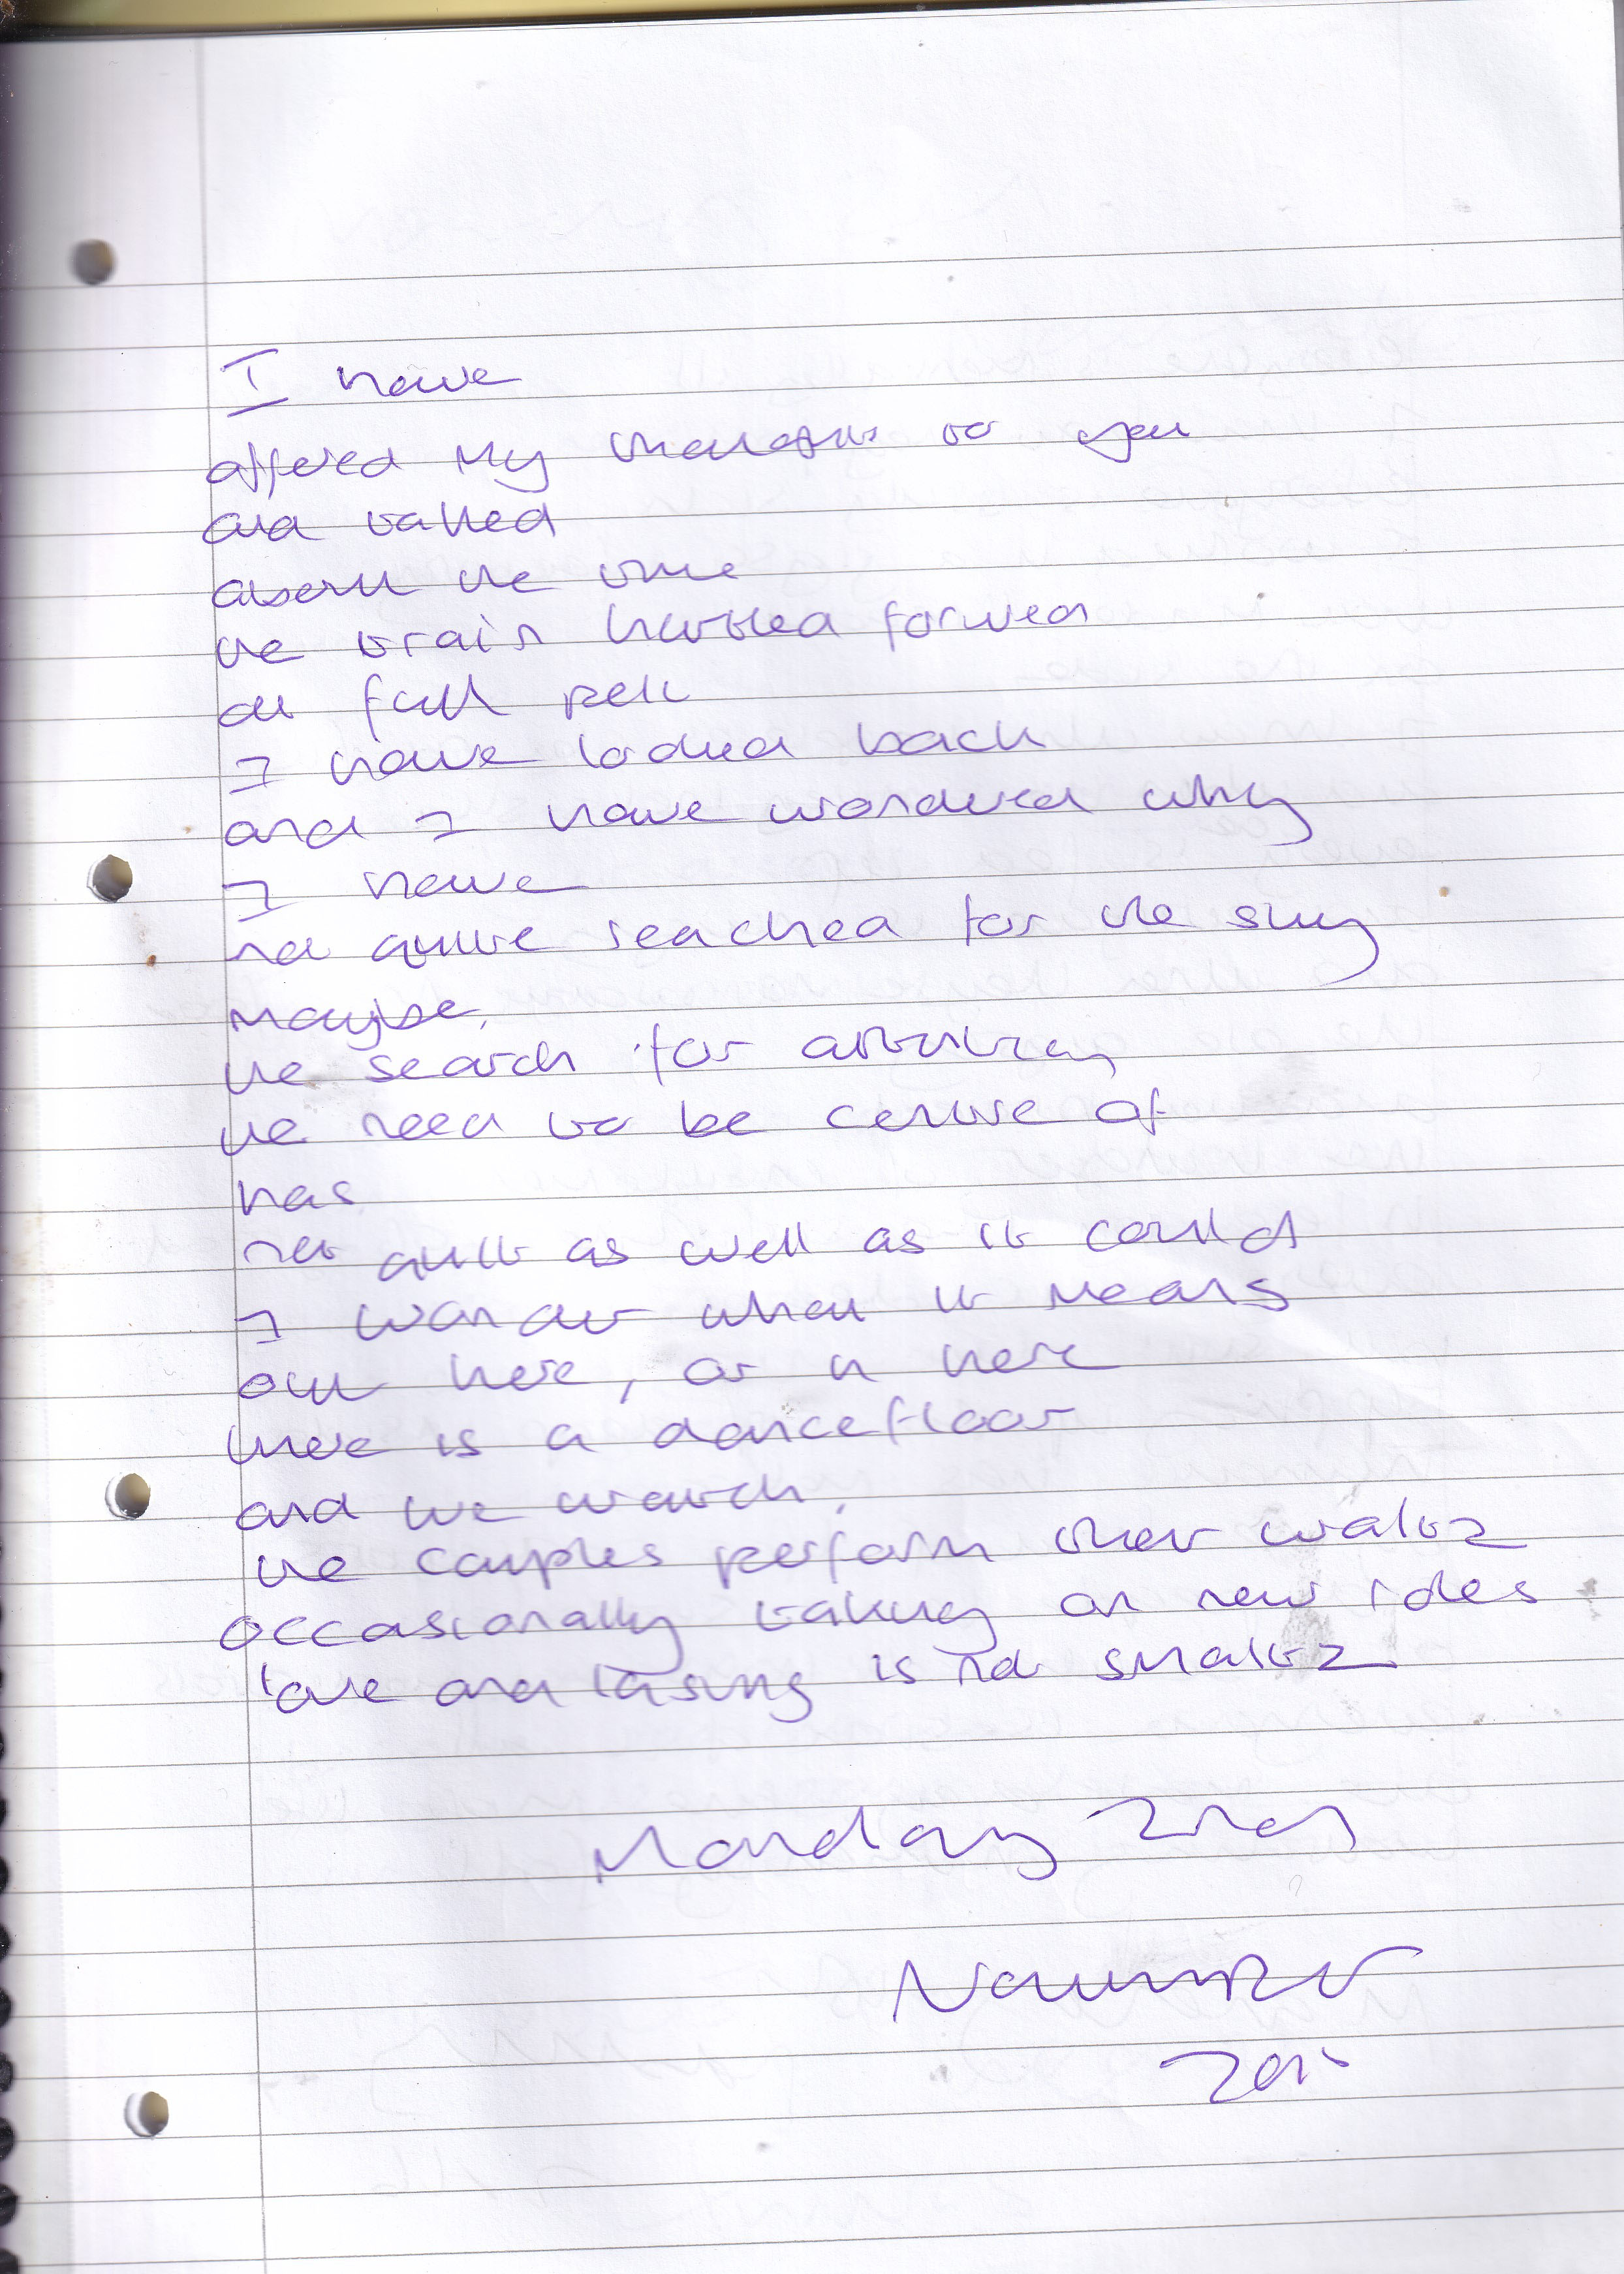 I have
offered my thoughts to you
and talked
about the time
the train hurtled forward
at full pelt
I have looked back
and I have wondered why
I have
not quite reached for the sky
maybe,
the search for
the need to be centre of
has
not quite as well as it could
I wonder what it means
out here, or in here
there is a dancefloor
and we watch,
the couples perform their waltz
occasionally taking on new roles
love and is not smaltz
Monday 2nd
November
2015